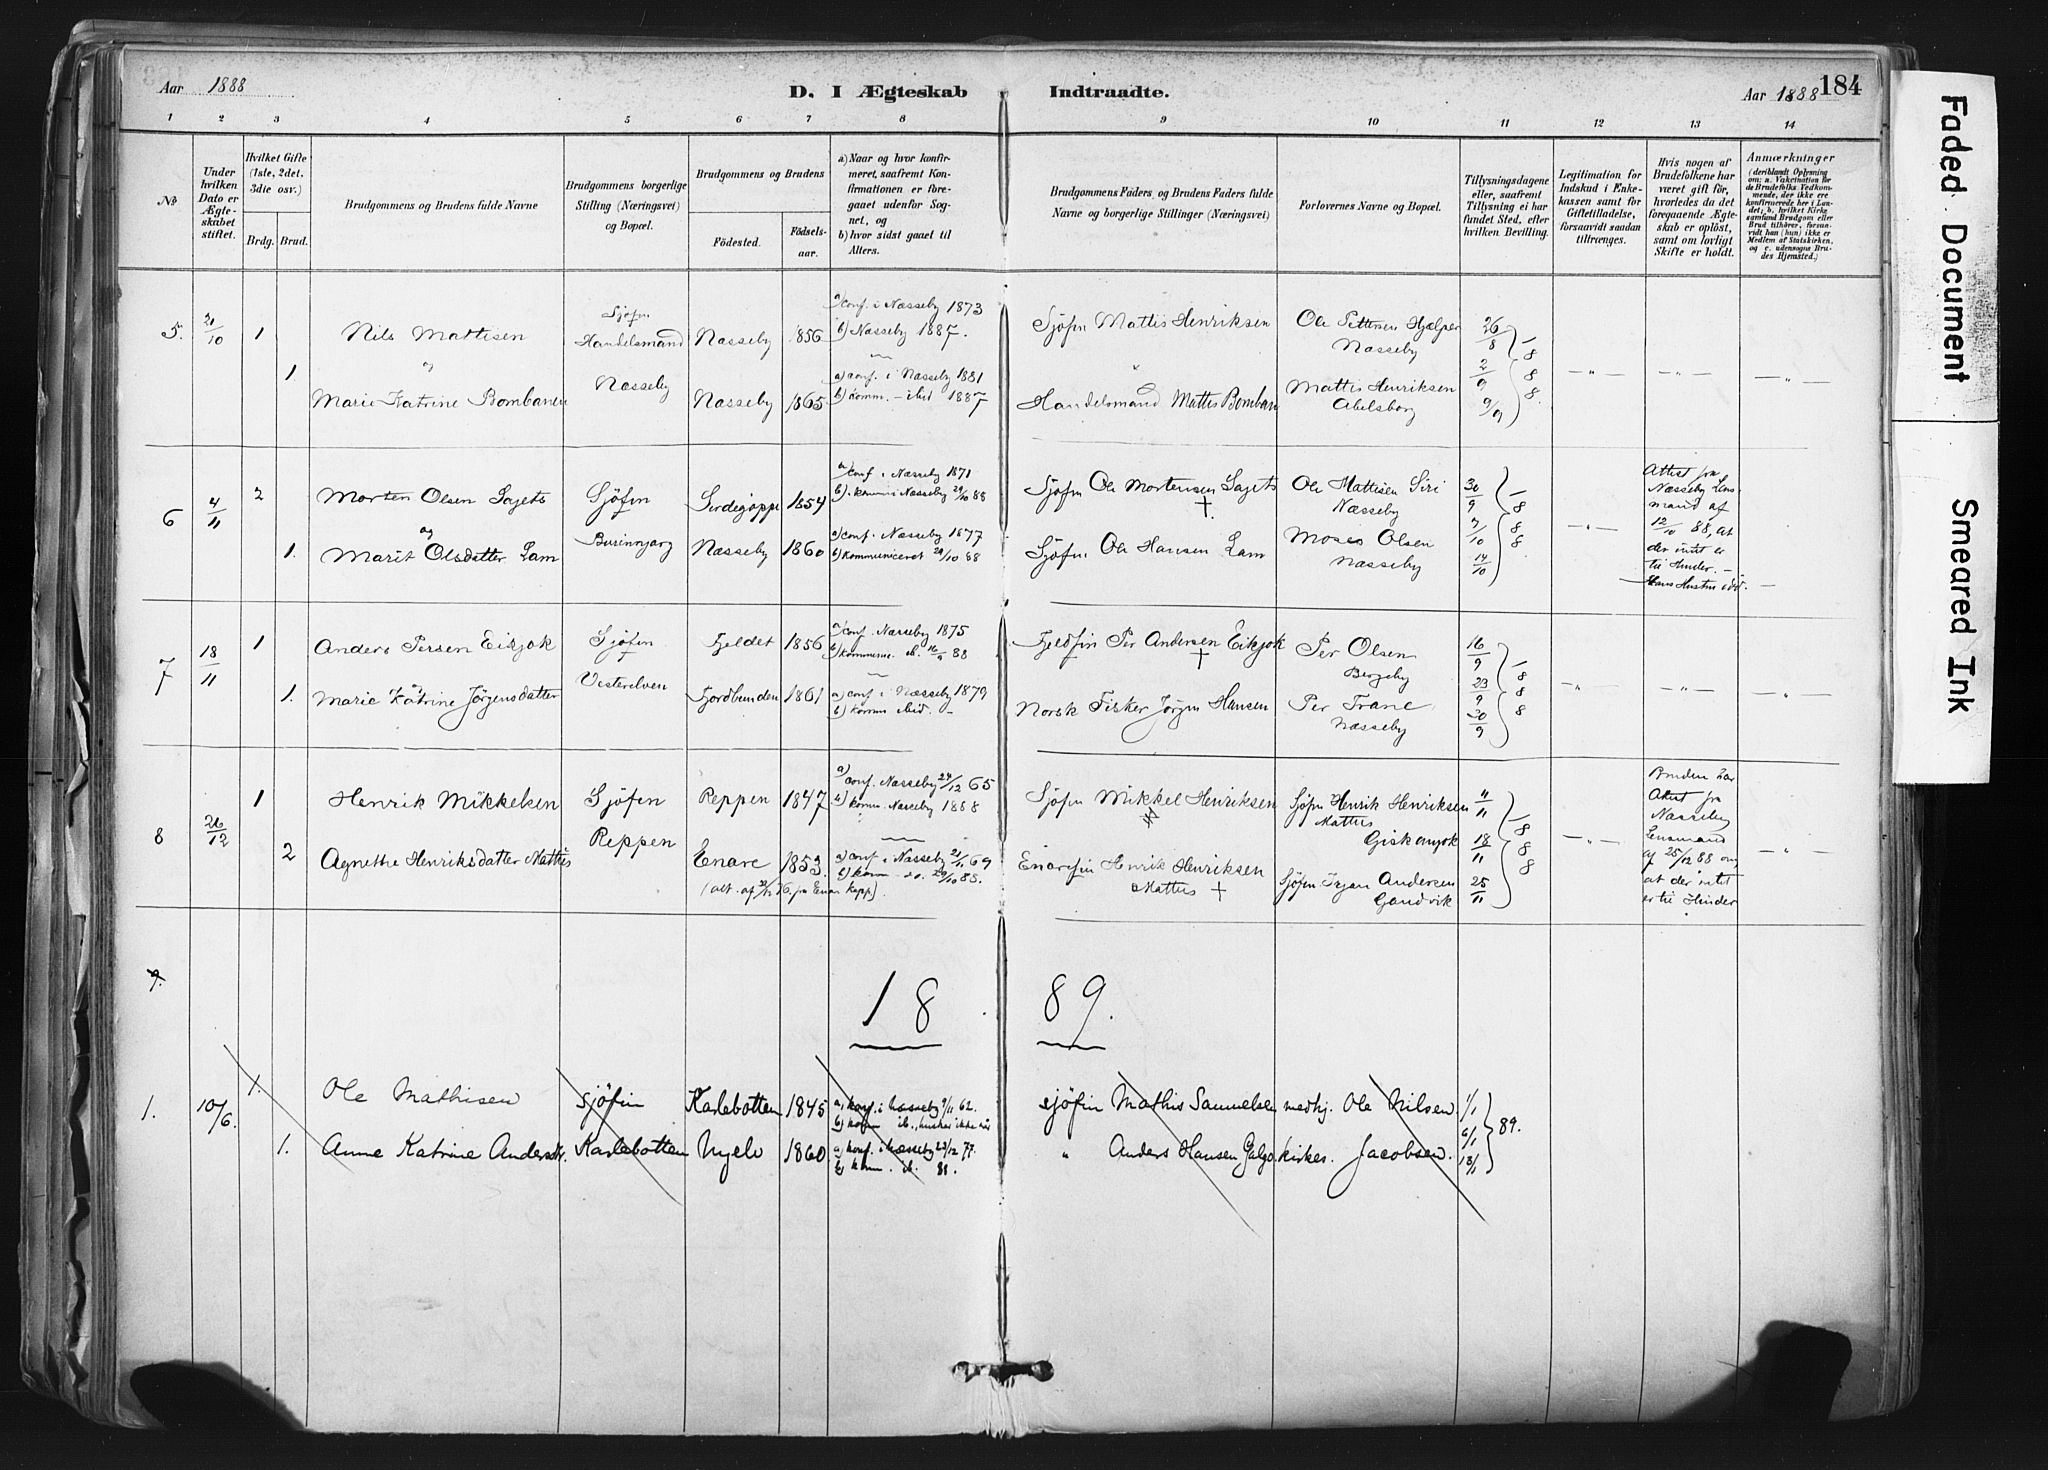 Aar 1888
D. I Ægteskab Indtraadte.
Aar 1888 184
1 2 3 4 5 6 7 8 9 10 11 12 13 14
No
Under hvilken Dato er Ægteskabet stiftet.
Hvilket Gifte (1ste, 2det, 3die osv.)
Brdg. Brud.
Brudgommens og Brudens fulde Navne
Brudgommens borgerlige Stilling (Næringsvei) og Bopæl.
Brudgommens og Brudens
Fødested. Fødselsaar.
a) Naar og hvor konfirmeret, saafremt Konfirmationen er foregaaet udenfor Sognet, og
b) hvor sidst gaaet til Alters.
Brudgommens Faders og Brudens Faders fulde Navne og borgerlige Stillinger (Næringsvei)
Forlovernes Navne og Bopæl.
Tillysningsdagene eller, saafremt Tillysning ei har fundet Sted, efter hvilken Bevilling.
Legitimation for Indskud i Enkekassen samt for Giftetilladelse, forsaavidt saadan tiltrænges.
Hvis nogen af Brudefolkene har været gift før, hvorledes da det foregaaende Ægteskab er opløst, samt om lovligt Skifte er holdt.
Anmærkninger
(deriblandt Oplysning om: a. Vakcination for de Brudefolks Vedkommende, der ikke ere konfirmerede her i Landet; b. hvilket Kirkesamfund Brudgom eller Brud tilhører, forsaavidt han (hun) ikke er Medlem af Statskirken, og c. udensogns Brudes Hjemsted.)
5. 21/10 1 Nils Mattisen
og
1. Marie Katrine Bombanen
Sjøfin
Handelsmand
Næsseby
Næsseby 1856
Næsseby 1865
a) conf. i Næsseby 1873
b) Næsseby 1887.
a) conf. i Næsseby 1881
b) komm. - ibid 1887
Sjøfin Mattis Henriksen
Handelsmand Mattis Bomban
Ole Pettersen Hjelper
Næsseby
Mattis Henriksen
Abelsborg
26/8
2/9
9/9
188 8
6 4/11 2 Morten Olsen Sajets
og
1. Marit Olsdatter Lam
Sjøfin
Businnjarg
1854
Næsseby 1860
a) conf. i Næsseby 1871
b). komm i Næsseby 29/10 88
a) conf. Næsseby 1877
b) kommuniceret 29/10 88
Sjøfin Ole Mortensen Sajets
†
Sjøfin Ole Hansen Lam
Ole Mattisen Siri
Næsseby
Moses Olsen
Næsseby
30/9
7/10
14/10
188 8
Attest fra
Næsseby Lens
mand af
12/10 88, at
der intet er
til Hinder. -
Hans Hustru død.
7 18/11 1 Anders Persen Eikjok
og
1. Marie Katrine Jörgensdatter
Sjøfin
Vesterelven
Fjeldet 1856
Fjordbunden 1861
a) conf. Næsseby 1875
b) kommunic. ib. 16/9 88
a) conf i Næsseby 1879
b) komm ibid. -
Fjeldfin Per Andersen Eikjok
†
Norsk Fisker Jörgen Hansen
Per Olsen
Bergeby
Per Trane
Næsseby
16/9
23/9
30/9
188 8
8 26/12 1 Henrik Mikkelsen
2 Agnethe Henriksdatter Mattis
Sjøfin
Reppen
Reppen 1847
Enare 1853.
a) conf. Næsseby 24/12 65
b) komm. Næsseby 1888
a) conf i Næsseby 21/11 69
b) komm. do. 29/10 88.
Sjøfin Mikkel Henriksen
Enarefin Henrik Henriksen
Mattus †
Sjøfin Henrik Henriksen
Mattus
Giskamjok
Sjøfin Irjan Andersen
Gandvik
4/11
18/11
25/11
188 8
Bruden har
Attest fra
Næsseby
Lensmand
af 25/12 88 om
at der intet
er til Hinder
9.
1889.
1. 10/6. 1. Ole Mathisen
1. Anne Katrine Andersdtr.
sjöfin
Karlebotten
Karlebotten 1845
Nyelv 1860
a) konf. i Næsseby 9/11 62.
b) komm ib., husker ikke når
a) konf. i Næsseby 23/12 77.
b) komm. ib. 88.
sjöfin Mathis Samuelsen
" Anders Hansen Galgo
medhj. Ole Nilsen.
kirkes. Jacobsen.
1/1
6/1
13/1
89.
Faded Document
Smeared Ink